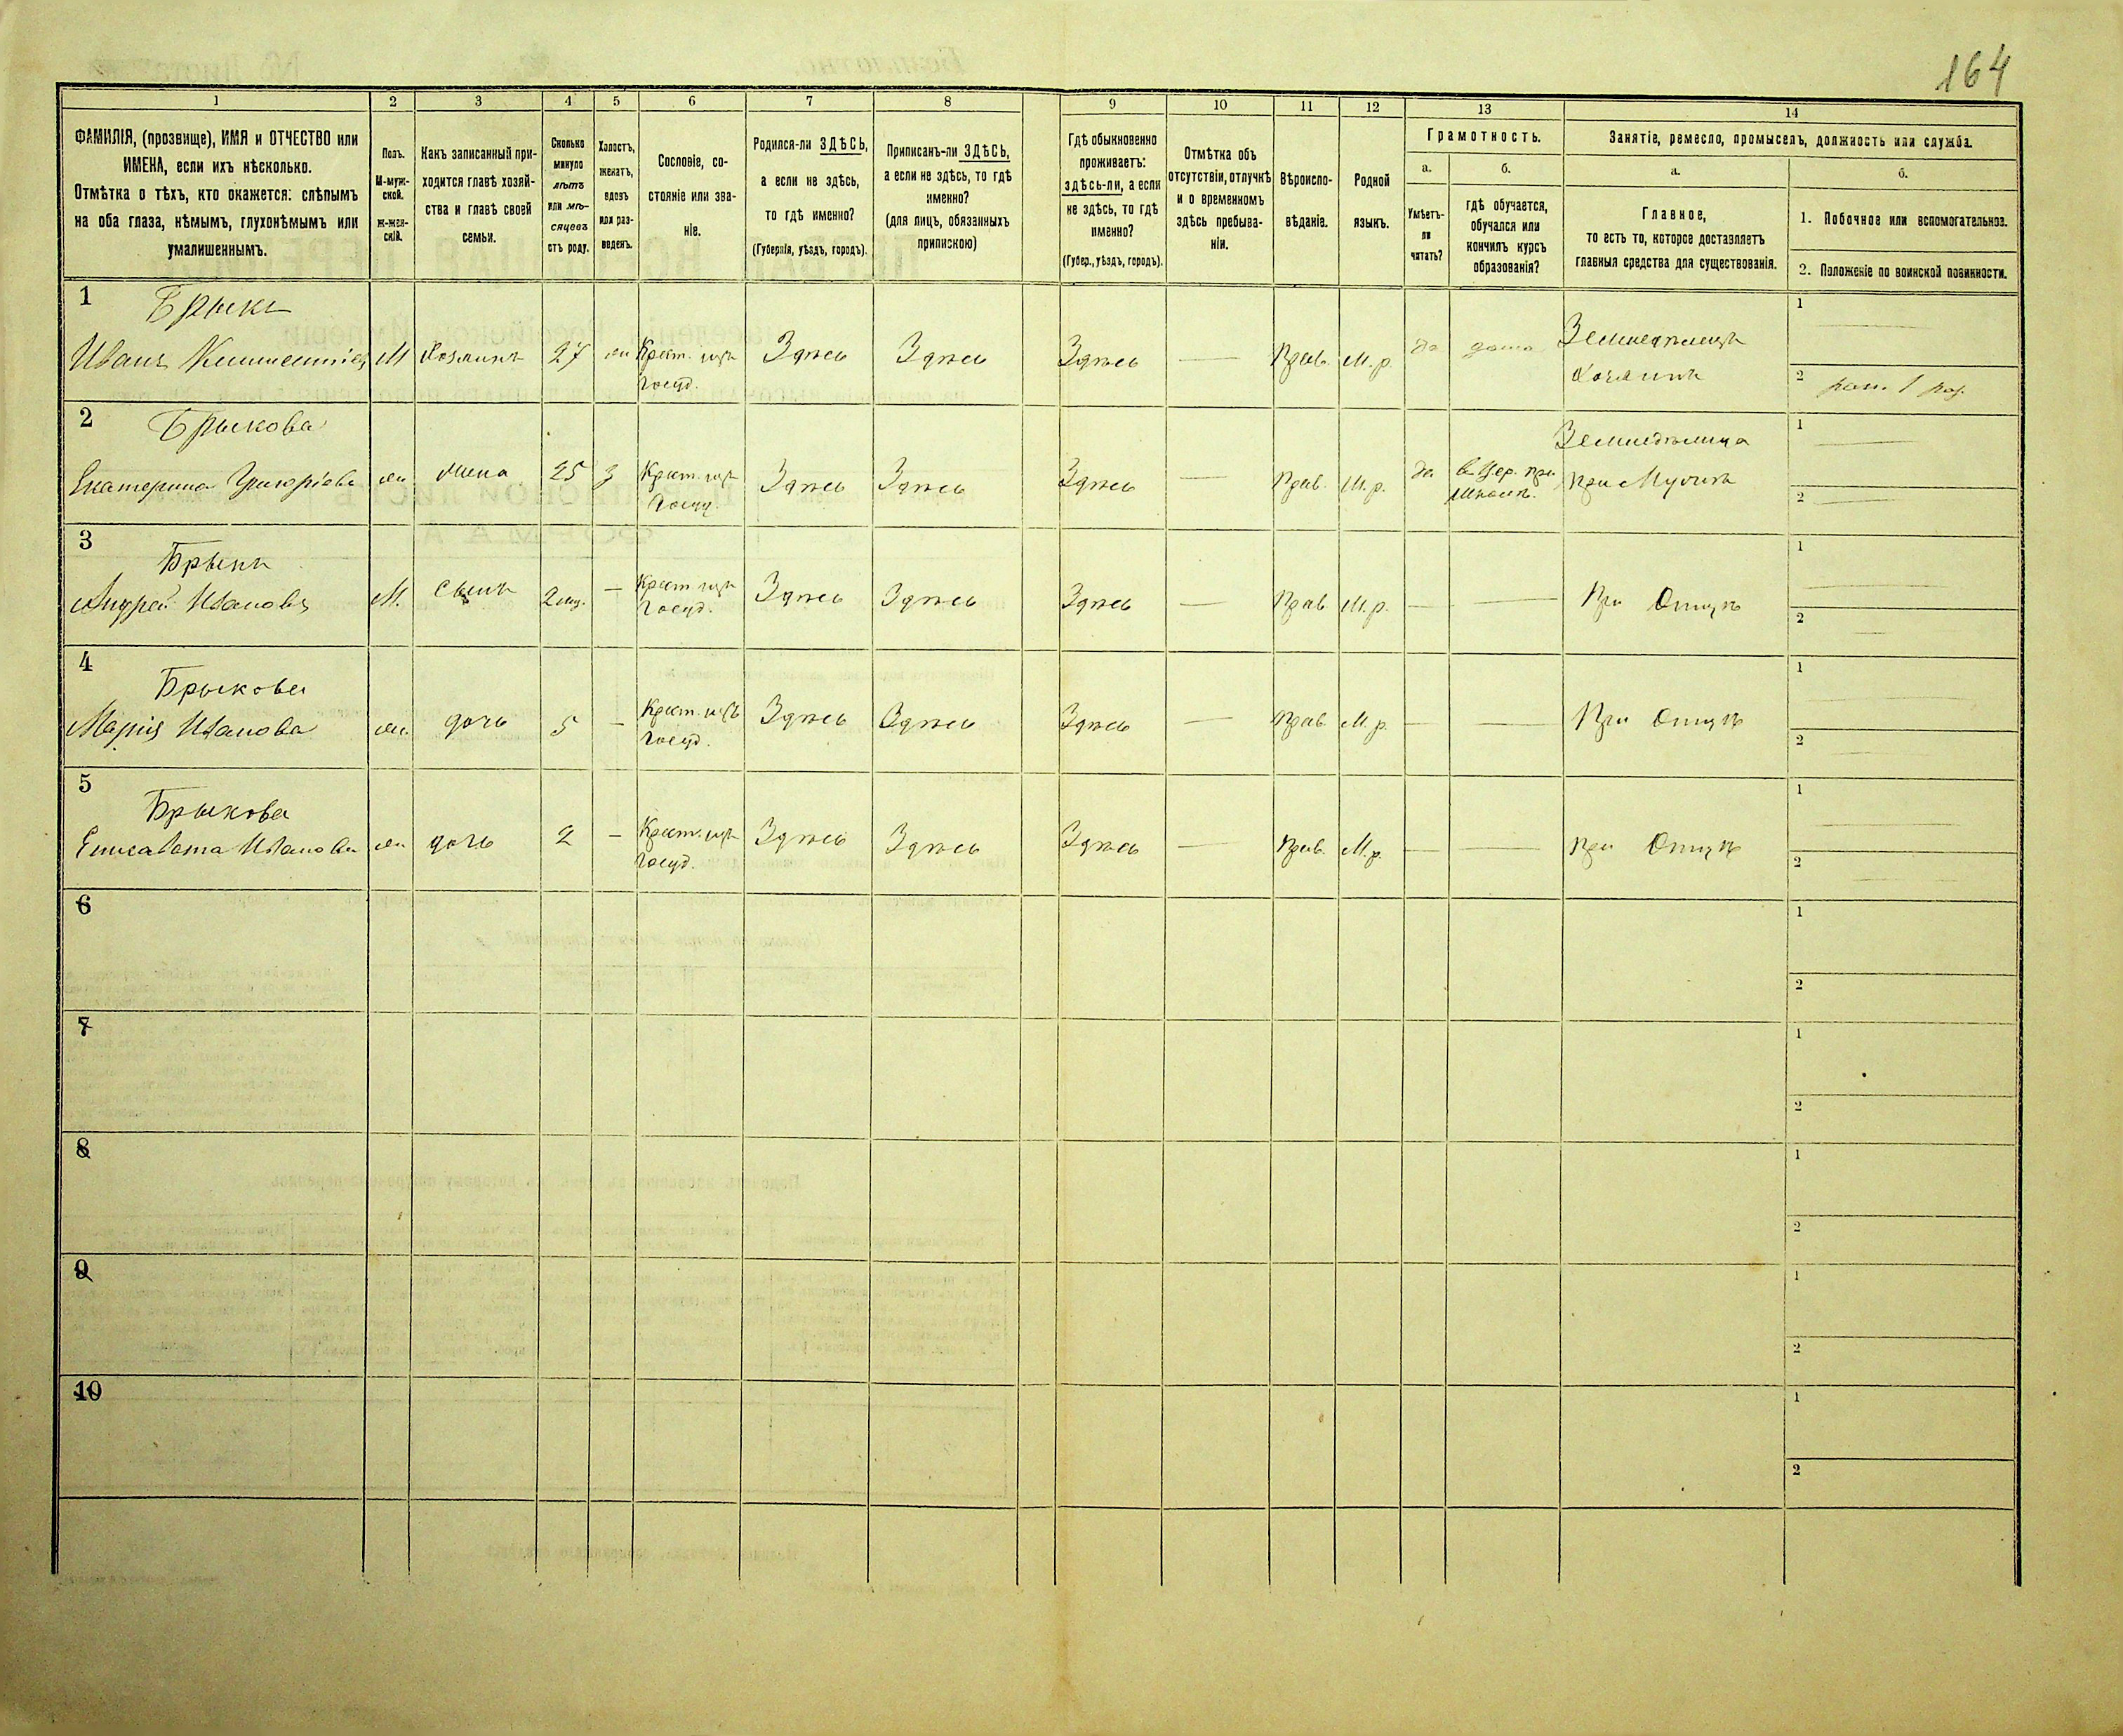 164
1 2 3 4 5 6 7 8 9 10 11 12 13 14
ФАМИЛІЯ, (прозвище), ИМЯ и ОТЧЕСТВО или
ИМЕНА, если ихъ нѣсколько.
Отмѣтка о тѣхъ, кто окажется: слѣпымъ
на оба глаза, нѣмымъ, глухонѣмымъ или
умалишеннымъ.
Полъ.
М-муж-
ской.
Ж-жен-
скій.
Какъ записанный при-
ходится главѣ хозяй-
ства и главѣ своей
семьи.
Сколько
минуло
лѣтъ
или мѣ-
сяцевъ
отъ роду.
Холостъ,
женатъ,
вдовъ
или раз-
веденъ.
Сословіе, со-
стояніе или зва-
ніе.
Родился-ли ЗДѢСЬ,
а если не здѣсь,
то гдѣ именно?
(Губернія, уѣздъ, городъ).
Приписанъ-ли ЗДѢСЬ,
а если не здѣсь, то гдѣ
именно?
(для лицъ, обязанныхъ
припискою)
Гдѣ обыкновенно
проживаетъ:
здѣсь-ли, а если
не здѣсь, то гдѣ
именно?
(Губер., уѣздъ, городъ).
Отмѣтка объ
отсутствіи, отлучкѣ
и о временномъ
здѣсь пребыва-
ніи.
Вѣроиспо-
вѣданіе.
Родной
языкъ.
Грамотность.
а.
Умѣетъ-
ли
читать?
б.
гдѣ обучается,
обучался или
кончилъ курсъ
образованія?
Занятіе, ремесло, промыселъ, должность или служба.
а.
Главное,
то есть то, которое доставляетъ
главныя средства для существованія.
б.
1. Побочное или вспомогательное.
2. Положеніе по воинской повинности.
1 Брыкъ
Иванъ М Хозяинъ 27 жен Крест. изъ
Госуд. Здѣсь Здѣсь Здѣсь — Прав. М. р. да дома Земледѣлецъ
Хозяинъ 1 —
2
2 Брыкова
Екатерина Григоріева жен жена 25 З Крест. изъ
Госуд. Здѣсь Здѣсь Здѣсь — Прав. М. р. да
школѣ. Земледѣлица
при Мужѣ 1 —
2 —
3 Брыкъ
Андрей Ивановъ М. сынъ 2 мц. — Крест. изъ
Госуд. Здѣсь Здѣсь Здѣсь — Прав М. р. — — При Отцѣ 1 —
2 —
4 Брыкова
Марія Иванова жен. дочь 5 — Крест. изъ
Госуд. Здѣсь Здѣсь Здѣсь — Прав М. р. — — При Отцѣ 1 —
2 —
5 Брыкова
Елисавета Иванова жен дочь 2 — Крест. изъ
Госуд. Здѣсь Здѣсь Здѣсь — Прав. М. р. — — При Отцѣ 1 —
2 —
6 1
2
7 1
2
8 1
2
9 1
2
10 1
2